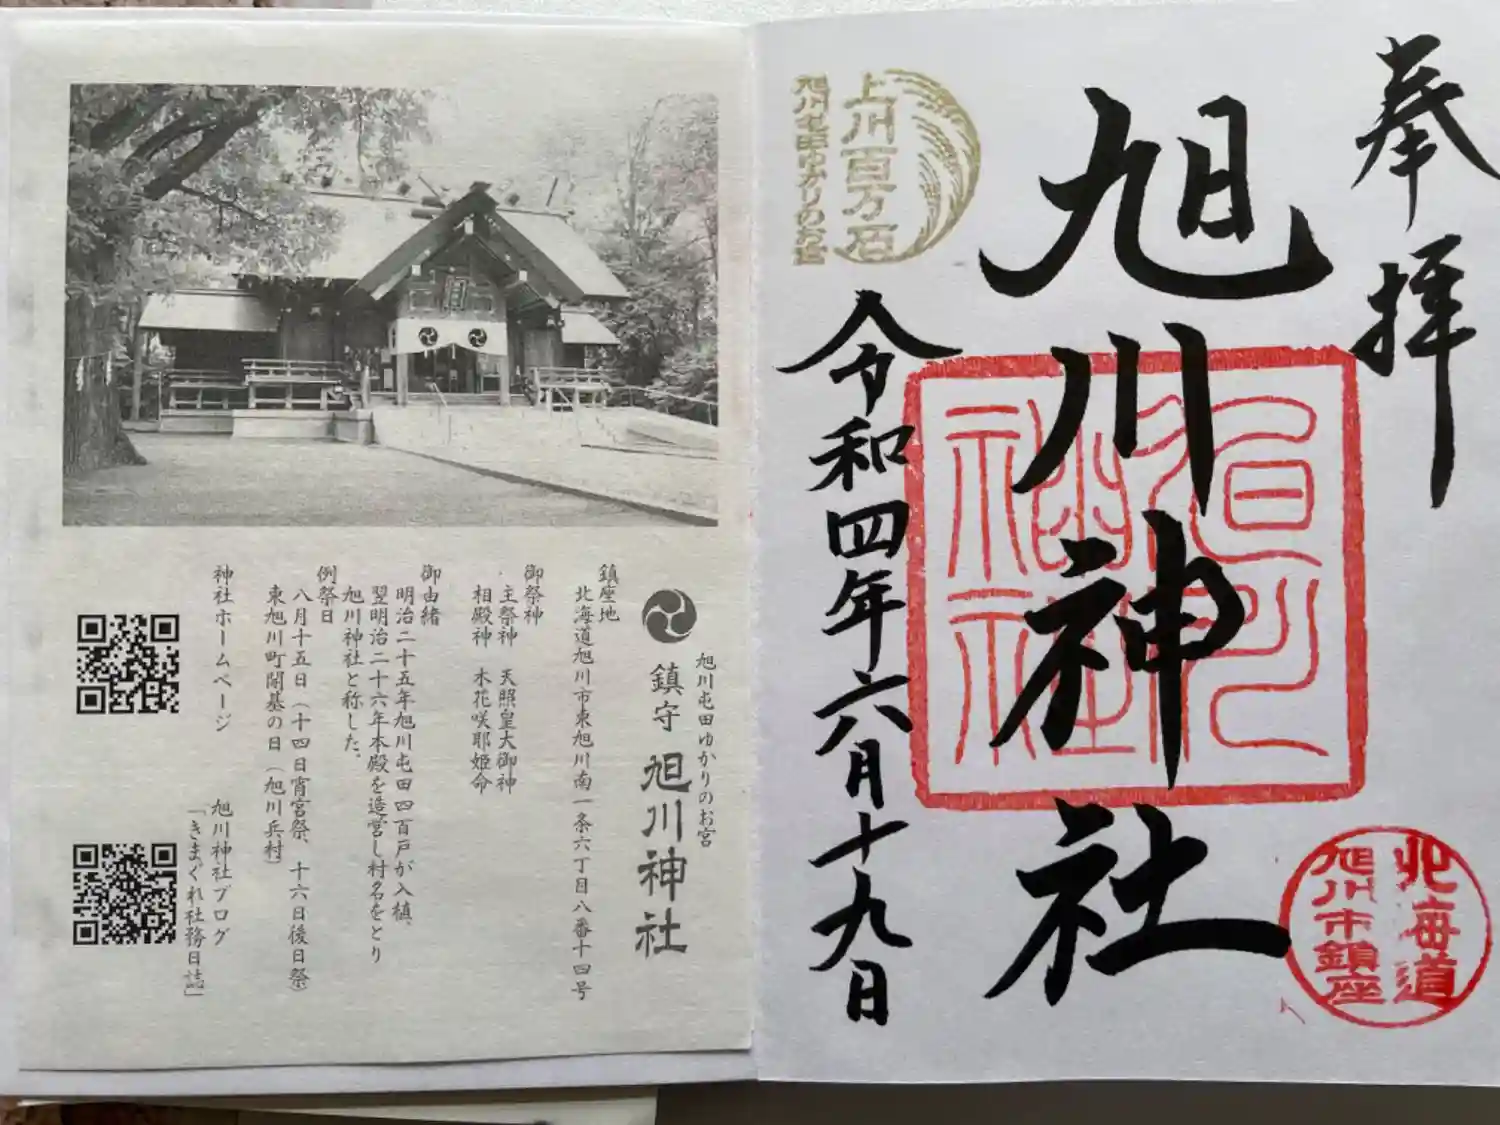 奉拝
旭川神社
令和四年六月十九日
上川百万石
旭川屯田ゆかりのお宮
北海道
旭川市鎮座
旭川神社
旭川屯田ゆかりのお宮
鎮守 旭川神社
鎮座地
北海道旭川市東旭川南一条六丁目八番十四号
御祭神
主祭神 天照皇大御神
相殿神 木花咲耶姫命
御由緒
明治二十五年旭川屯田四百戸が入植、
翌明治二十六年本殿を造営し村名をとり
旭川神社と称した。
例祭日
八月十五日(十四日宵宮祭、十六日後日祭)
東旭川町開基の日(旭川兵村)
神社ホームページ
旭川神社ブログ
「きまぐれ社務日誌」